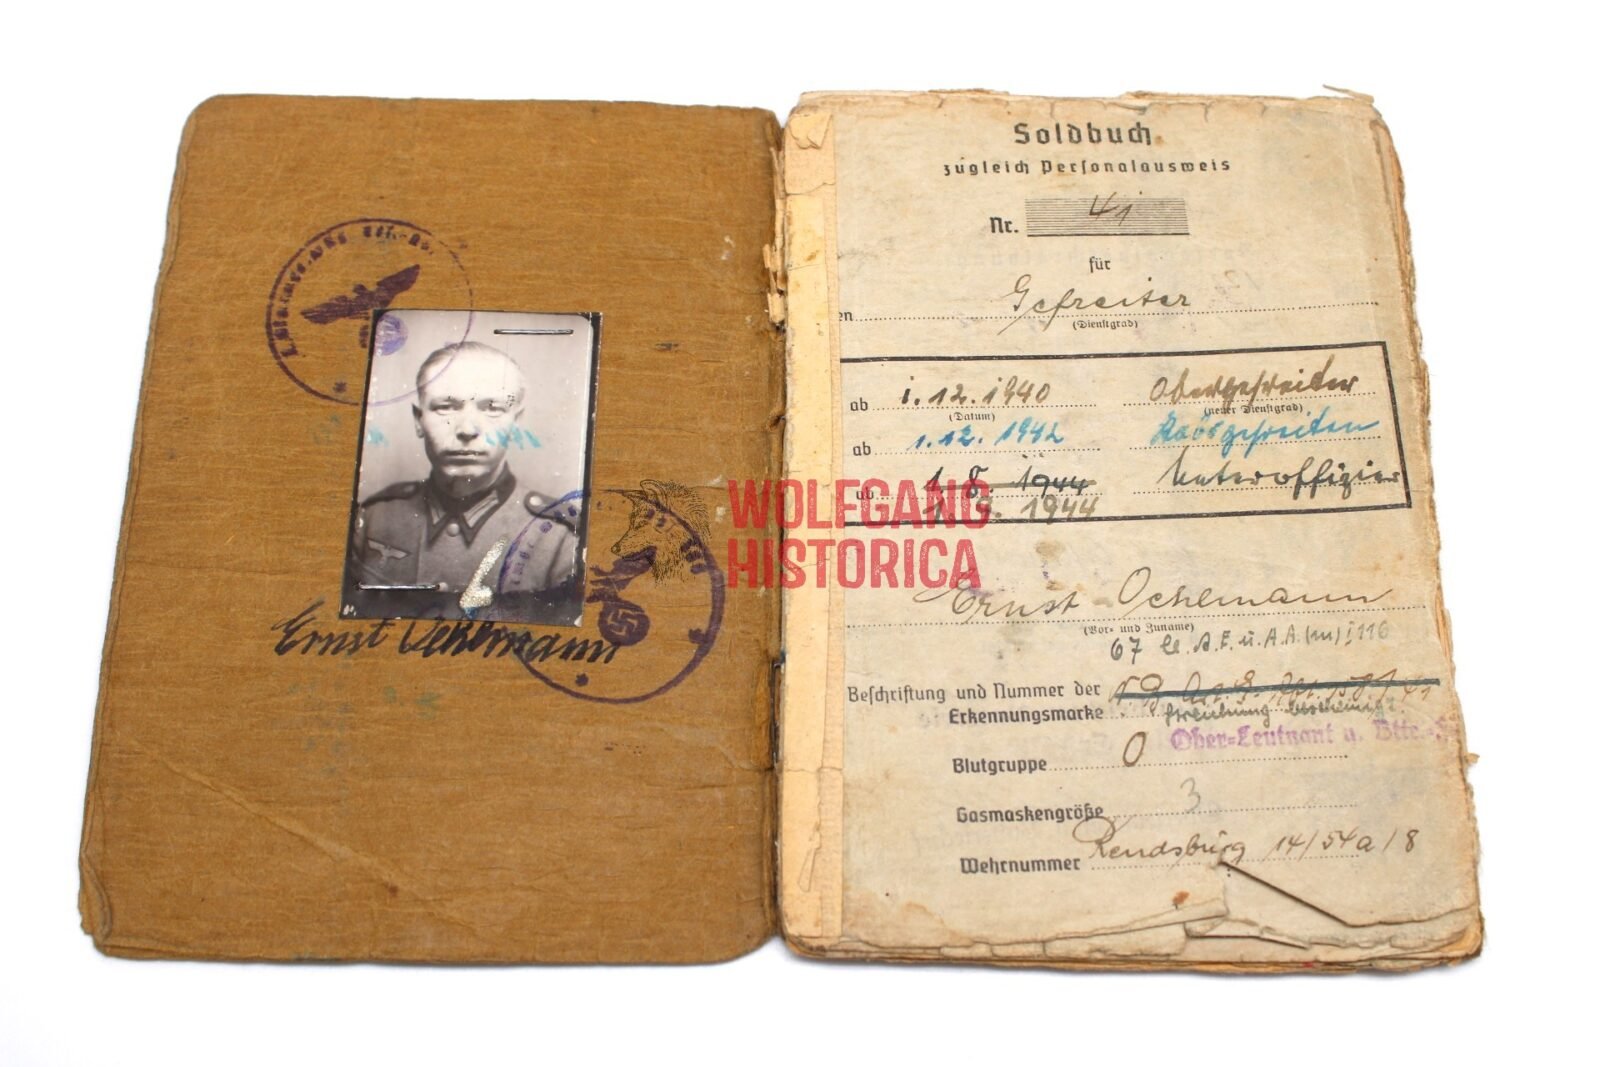 Ernst Oehlmann
Soldbuch
zugleich Personalausweis
Nr. 41
für
en Gefreiter
(Dienstgrad)
ab 1.12.1940 Obergefreiter
(Datum) (neuer Dienstgrad)
ab 1.12.1942 Habsgefreiten
ab 1.8.1944 Unteroffizier
1.9.1944
WOLFGANG
HISTORICA
Ernst Oehlmann
(Vor- und Zuname)
67 le. A.E. u. A.A. (m) I 116
Beschriftung und Nummer der
Erkennungsmarke
Ober-Leutnant u. Bttr.
Blutgruppe O
Gasmaskengröße 3
Wehrnummer Rendsburg 14/54a/8